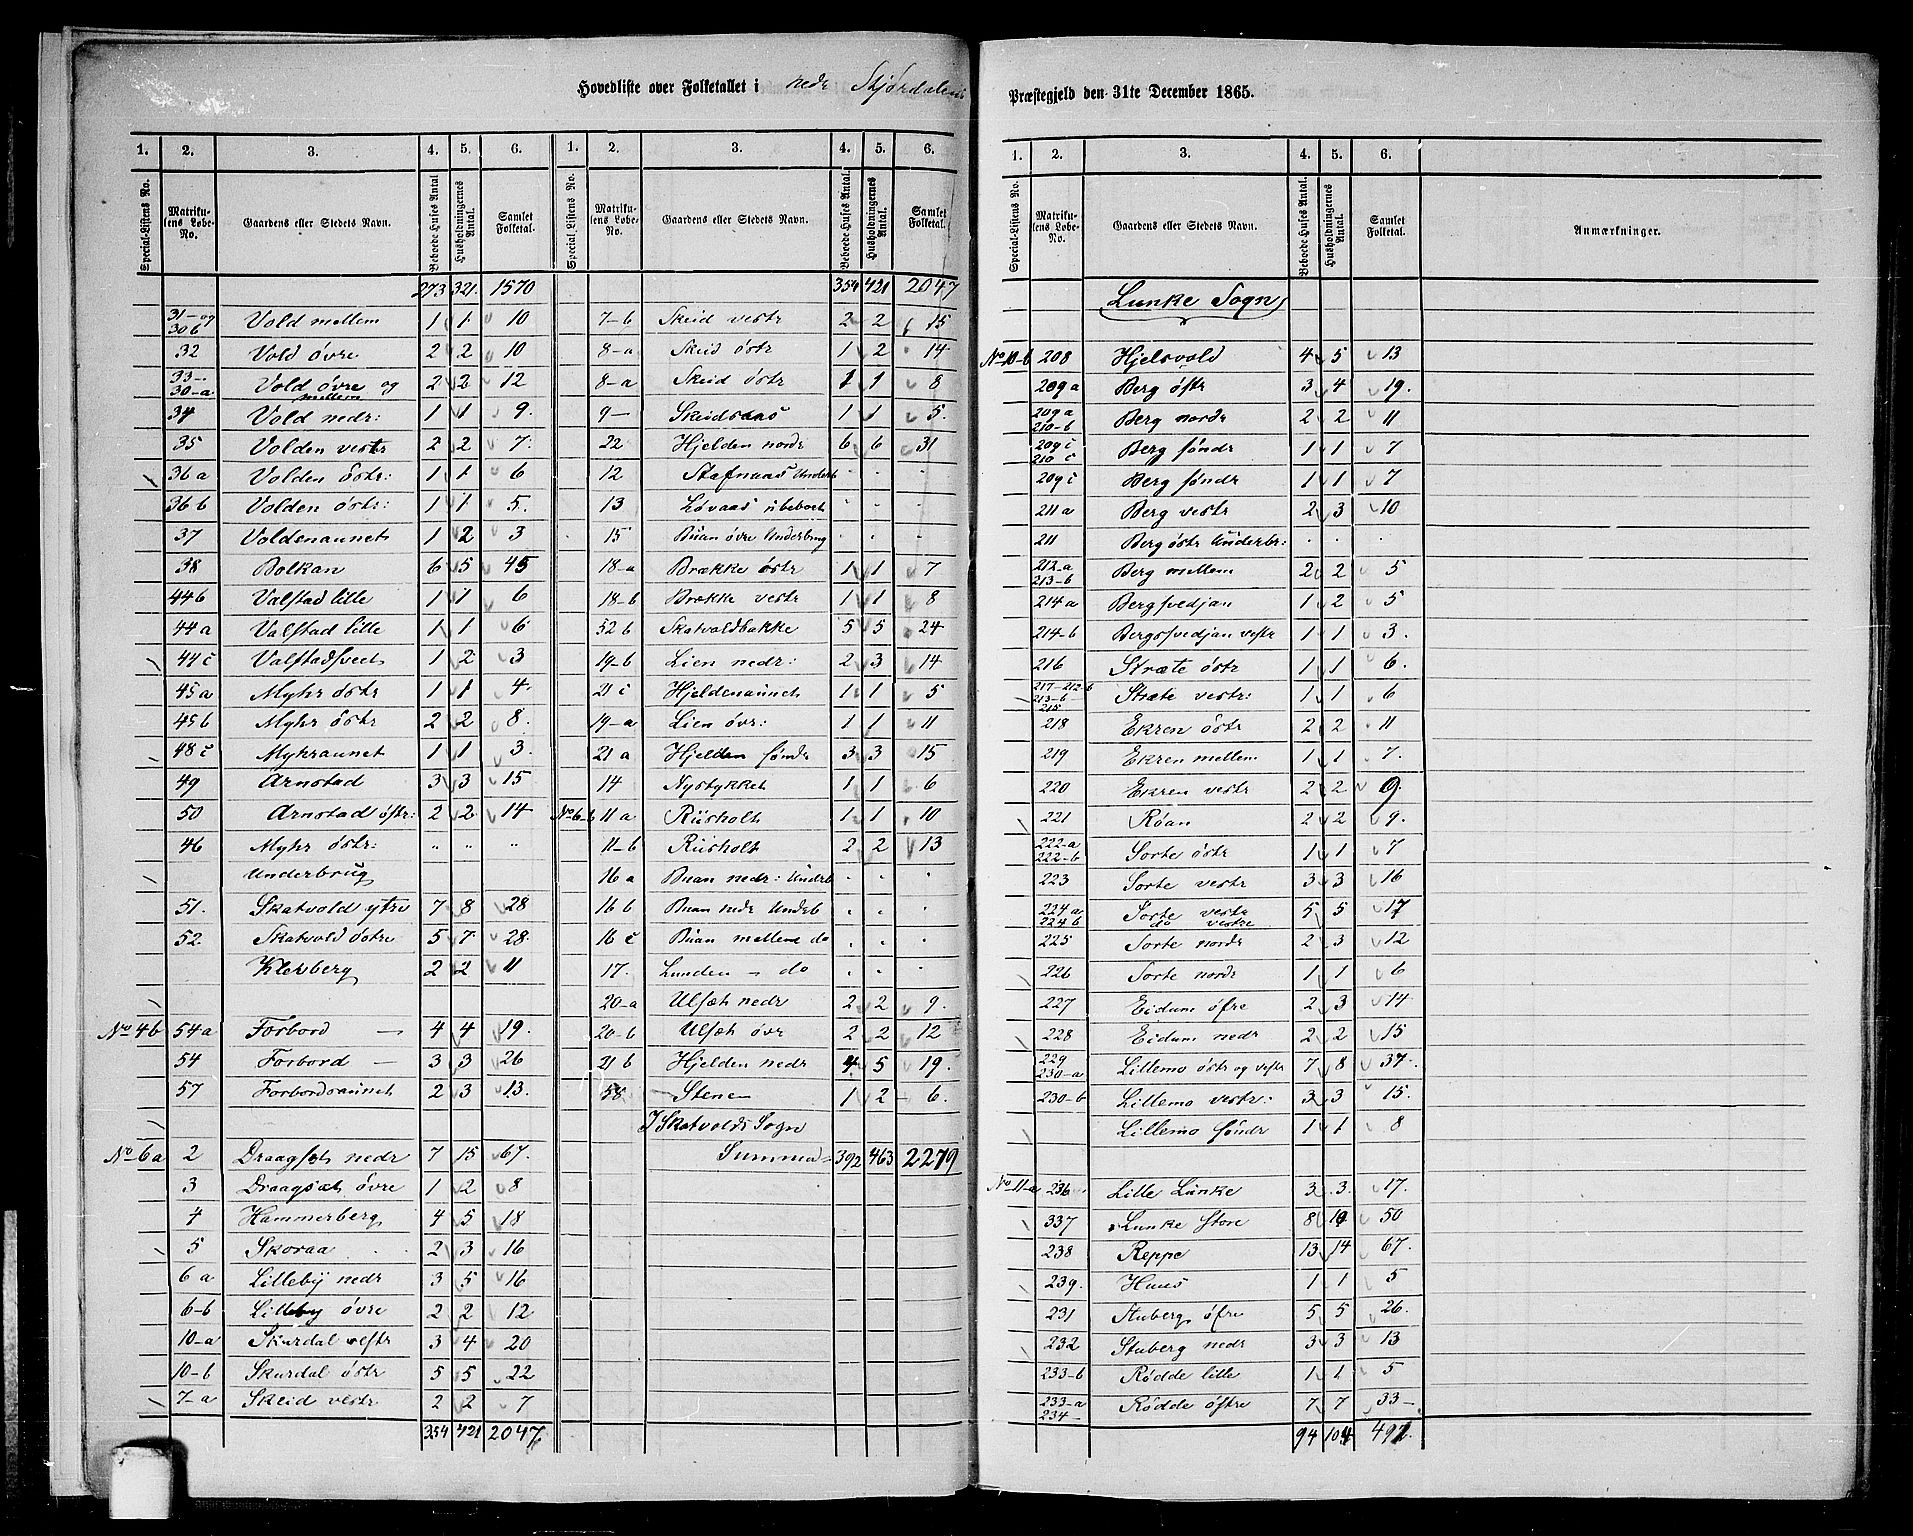 Hovedliste over Folketallet i nedr Stjørdalens
Præstegjeld den 31te December 1865.
1. 2. 3. 4. 5. 6. 1. 2. 3. 4. 5. 6.
Special-Listens No. Matrikulens Løbe-No. Gaardens eller Stedets Navn. Beboede Huses Antal Husholdningernes Antal. Samlet Folketal. Special-Listens No. Matrikulens Løbe-No. Gaardens eller Stedets Navn. Beboede Huses Antal. Husholdningernes Antal. Samlet Folketal.
273 321. 1570
31- og 30 b Vold mellem 1 1 10
32 Vold övre 2 2 10
33-. 30-a Vold övre og mellem 2 2 12
34 Vold nedr: 1 1 9.
35 Volden vestr 2 2 7.
36 a Volden östr: 1 1 6
36 b Volden östr: 1 1 5.
37 Voldenaunet 1 2 3
38 Bolkan 6 5 45
44 b Valstad lille 1 1 6
44 a Valstad lille 1 1 6
44 c Valstadsveet 1 2 3
45 a Myhr östr 1 1 4.
45 b Myhr östr 2 2 8.
48 c Myhraunet 1 1 3.
49 Arnstad 3 3 15
50 Arnstad östr: 2 2 14
46 Myhr östr: " " "
Underbrug
51. Skatvold ytre 7 8 28
52. Skatvold östre 5 7 28.
Klefberg 2 2 11
No 4b 54 a Forbord - 4 4 19.
54 Forbord - 3 3 26
57 Forbordsaunet 2 3 13.
No 6 a 2 Draagset nedr 7 15 67.
3 Draagsæt övre 1 2 8
4 Hammerberg 4 5 18
5 Skoraa 2 3 16
6 a Lilleby nedr 3 5 16
6-b Lilleby övre 2 2 12
10-a Skurdal vestr 3 4 20
10-b Skurdal östr 5 5 22
7-a Skeid vestr 2 2 7
354 421 2047.
354 421 2047
7-b Skeid vestr 2 2 15
8-a Skeid östr 1 2 14
8-a Skeid östr 1 1 8
9- Skeidsaas 1 1 5.
22 Hjelden nordr 6 6 31
12 Stafnaas Underb . . .
13 Lövaas ubeboet . . .
15 Buan övre Underbrug . . .
18-a Brække östr 1 1 7
18-b Brække vestr 1 1 8
52 b Skatvoldbakke 5 5 24
19-b Lien nedr: 2 3 14
21 c Hjeldenaunet 1 1 5
19-a Lien övr: 1 1 11
21 a Hjelden söndr 3 3 15
14 Nystykket 1 1 6
No 6-b 11 a Riisholt 1 1 10
11-b Riisholt 2 2 13
16 a Buan nedr: Underb . . .
16 b Buan nedr Underb . . .
16 c Buan mellem do . . .
17. Lunden - do . . .
20-a Ulsæt nedr 2 2 9.
20-b Ulsæt övr 2 2 12
21 b Hjelden nedr 4 5 19.
58 Stene 1 2 6.
I Skatvolds Sogn
Summa 392 463 2279
1. 2. 3. 4. 5. 6.
Special-Listens No. Matrikulens Løbe-No. Gaardens eller Stedets Navn. Beboede Huses Antal. Husholdningernes Antal. Samlet Folketal. Anmærkninger.
Lunke Sogn
No 10-b 208 Hjelsvold 4 5 13
209 a Berg östr 3 4 19.
209 a 210-b Berg nordr 2 2 11
209 c 210 c Berg söndr 1 1 7
209 c Berg söndr 1 1 7
211 a Berg vestr 2 3 10
211 Berg östr Underbr: . . .
212-a 213-b Berg mellem 2 2 5
214 a Bergsvedjan 1 2 5
214-b Bergsvedjan vestr 1 1 3.
216 Stræte östr 1 1 6.
217-212-b 213-b 215 Stræte vestr: 1 1 6
218 Ekren östr 2 2 11
219 Ekren mellem 1 1 7.
220 Ekren vestr 2 2 9.
221 Röan 2 2 9.
222-a 222-b Sorte östr 1 1 7
223 Sorte vestr 3 3 16
224 a 224 b Sorte vestr do vestre 5 5 17
225 Sorte nordr 2 3 12
226 Sorte nordr 1 1 6
227 Eidum öfre 2 3 14
228 Eidum nedr 2 2 15
229 230-a Lillemo östr og vestr 7 8 37.
230-b Lillemo vestr: 3 3 15.
Lillemo söndr 1 1 8
No 11-a 236 Lille Lunke 3 3. 17.
337 Lunke store 8 10 50
238 Reppe 13 14 67.
239. Huus 1 1 5
231 Stuberg öfre 5 5 26.
232 Stuberg nedr 3 3 13
233-b Rödde lille 1 1 5
233-a 234- Rödde östre 7 7 33-
94 104 492.